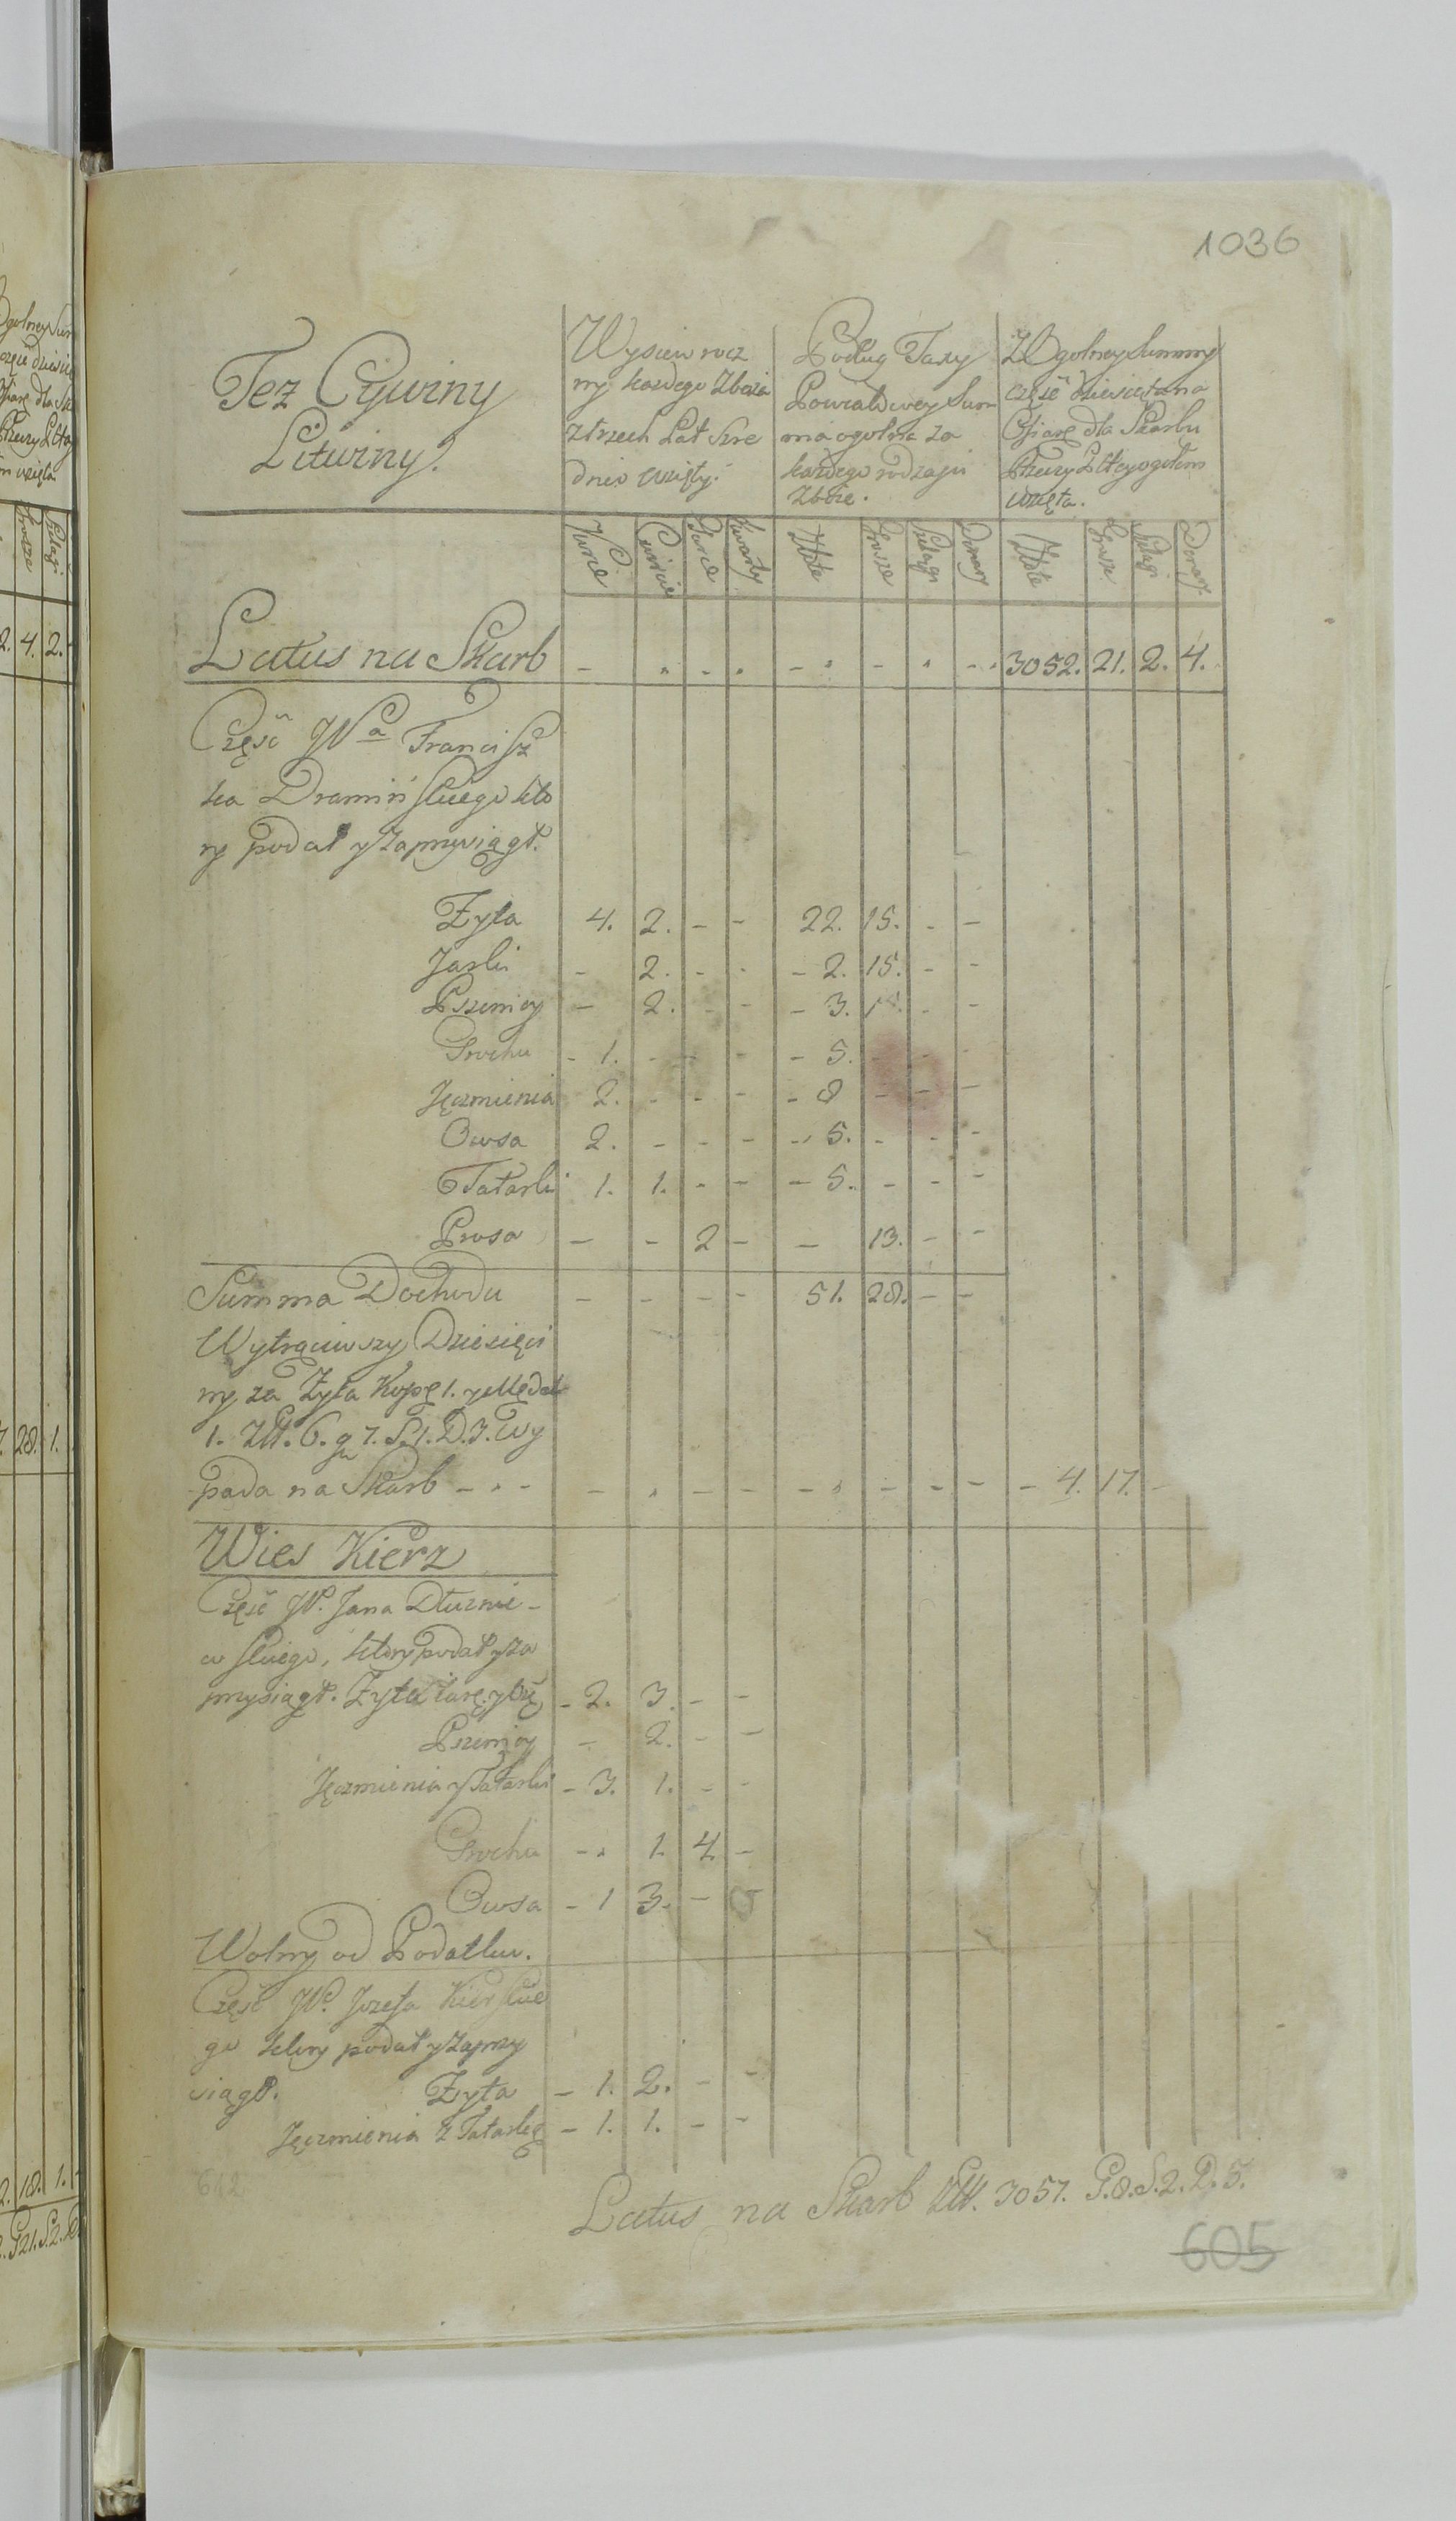 1036
Tez Cywiny
Litwiny.
Wysiew rocz
ny kazdego Zboza
z trzech Lat Sre
dnio wzięty.
Podług Taxy
Powiatowey Sum
ma ogolna za
kazdego rodzaju
Zboze.
Z Ogolney Summy
część dziesiętana
Ofiarę dla Skarbu
Rzeczy Pltey ogołem
wzięta.
Korce Cwierci Garce Kwarty Złote Grosze Szelągi Denary Złote Grosze Szelągi Denary
Latus na Skarb - . - . - . - . - . 3052. 21. 2. 4.
Część JWa Francisz
ka Dramińskiego kto
ry podał y zaprzysiągł.
Zyta 4. 2. - - 22. 15. - -
Jarki - 2. - - - 2. 15. - -
Pszenicy - 2. - - - 3. - -
Grochu - 1. - - - - 5. - - -
Jęczmienia 2. - - - - 8 - - -
Owsa 2. - - - - 5. - - -
Tatarki 1. 1. - - - 5. - - -
Prosa - - 2 - - 13. - -
Summa Dochodu - - - - 51. 28. - -
Wytrąciwszy Dziesięci
ny za Zyta Kopę 1. y Mędel
1. Złt. 6. gr 7. S. 1. D. 3. Wy
pada na Skarb - . - - . - - - . - - - - 4. 17. -
Wies Kierz
Część JP. Jana Dłuznie-
wskiego, ktory podał y za
przysiągł. Zyta - 2. 3. - -
Pszenicy - 2. - -
Jęczmienia y Tatarki - 3. 1. - -
Grochu - . 1. 4. -
Owsa - 1 3. -
Wolny od Podatku.
Część JP. Jozefa Kierskie
go ktory podał y zaprzy
siągł. Zyta - 1. 2. - -
Jęczmienia z Tatarką - 1. 1. - -
642
Latus na Skarb Złt. 3057. G. 8. S. 2. D. 5.
605